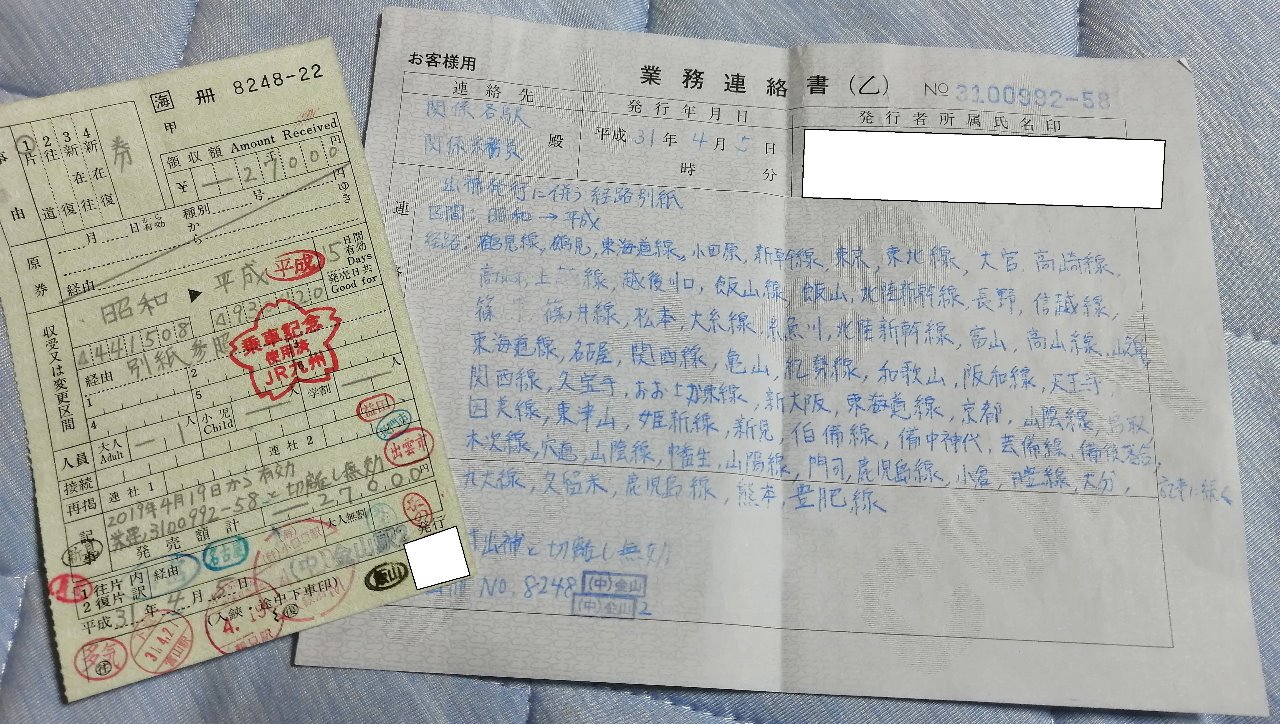 海 冊 8248-22
甲
1 2 3 4
片 往 新 新
道 復 在 在
往 復
券
領収額 Amount Received
¥ ー 27000
種別
号
円
ゆき
月 日 有効 から
原券
経由
昭和 ▶ 平成
平成
15日間有効
Days
発売日共
Good for
4441508
4921120
収受又は変更区間
経由 別紙参照
乗車記念
使用済
JR九州
1 2
4 5
人員 大人 Adult ー 1 人 小児 Child ー 人 学割 ー 人
接続 連社1 連社2
再掲
出雲市
記事
2019年4月19日から有効
業連3100992-58と切離し無効
発売額計 ー 27000円
大人無割
発行
名古屋
(中)金山駅2
亀山
1往片 内訳 経由
2復片
平成31年4月5日
(入鋏・途中下車印)
多気
31.4.2
富山駅
4.19
お客様用
業務連絡書(乙) No 3100992-58
連絡先 発行年月日 発行者所属氏名印
関係各駅
関係乗務員 殿 平成31年4月5日
時 分
出補発行に伴う経路別紙
区間:昭和→平成
経路:鶴見線,鶴見,東海道線,小田原,新幹線,東京,東北線,大宮,高崎線,
高崎,上越線,越後川口,飯山線,飯山,北陸新幹線,長野,信越線,
篠ノ井,篠ノ井線,松本,大糸線,糸魚川,北陸新幹線,富山,高山線,岐阜,
東海道線,名古屋,関西線,亀山,紀勢線,和歌山,阪和線,天王寺
関西線,久宝寺,おおさか東線,新大阪,東海道線,京都,山陰線,鳥取,
因美線,東津山,姫新線,新見,伯備線,備中神代,芸備線,備後落合,
木次線,宍道,山陰線,幡生,山陽線,門司,鹿児島線,小倉,日豊線,大分,
久大線,久留米,鹿児島線,熊本,豊肥線
記事に続く
出補と切離し無効
No.8248 (中)金山
(中)金山2